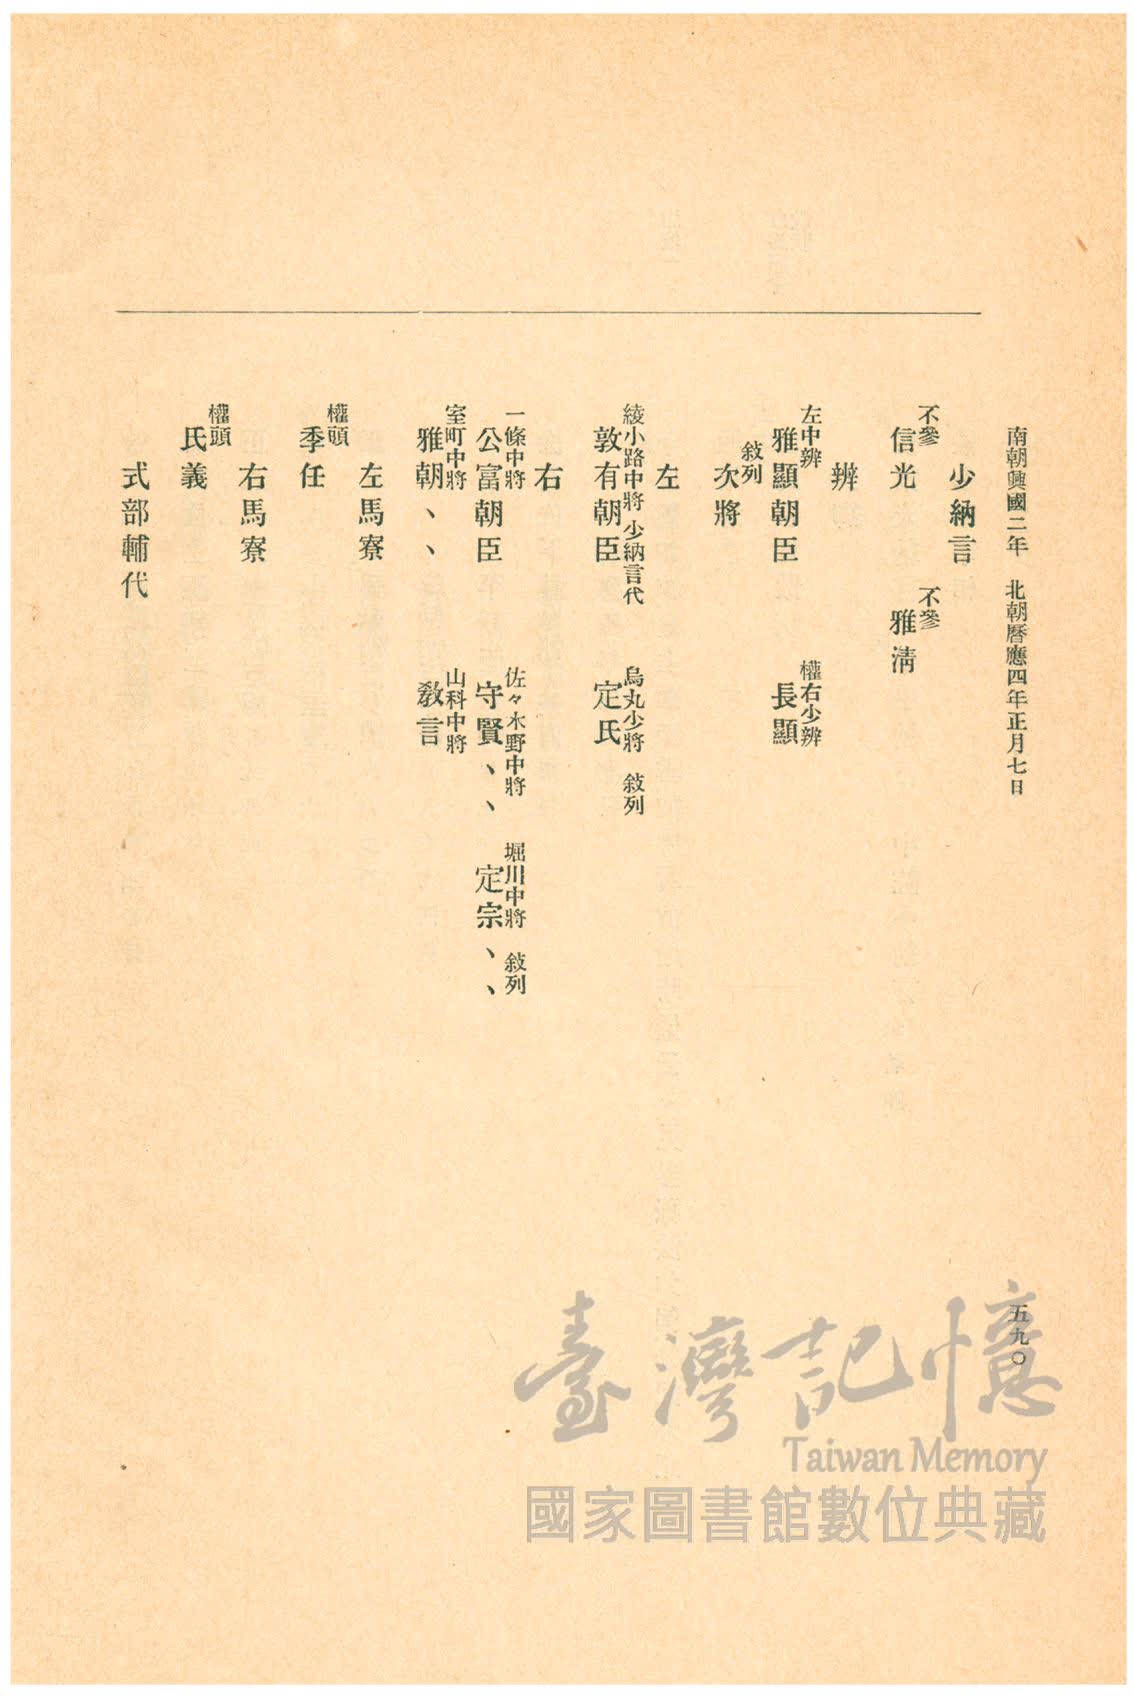 南朝興國二年　北朝曆應四年正月七日
少納言
不參　不參
信光　雅淸
辨
左中辨　權右少辨
雅顯朝臣　長顯
敍列
次將
左
綾小路中將 少納言代　烏丸少將 敍列
敦有朝臣　定氏
右
一條中將　佐々木野中將　堀川中將 敍列
公富朝臣　守賢、、　定宗、、
室町中將　山科中將
雅朝、、　敎言
左馬寮
權頭
季任
右馬寮
權頭
氏義
式部輔代
五九〇
臺灣記憶
Taiwan Memory
國家圖書館數位典藏